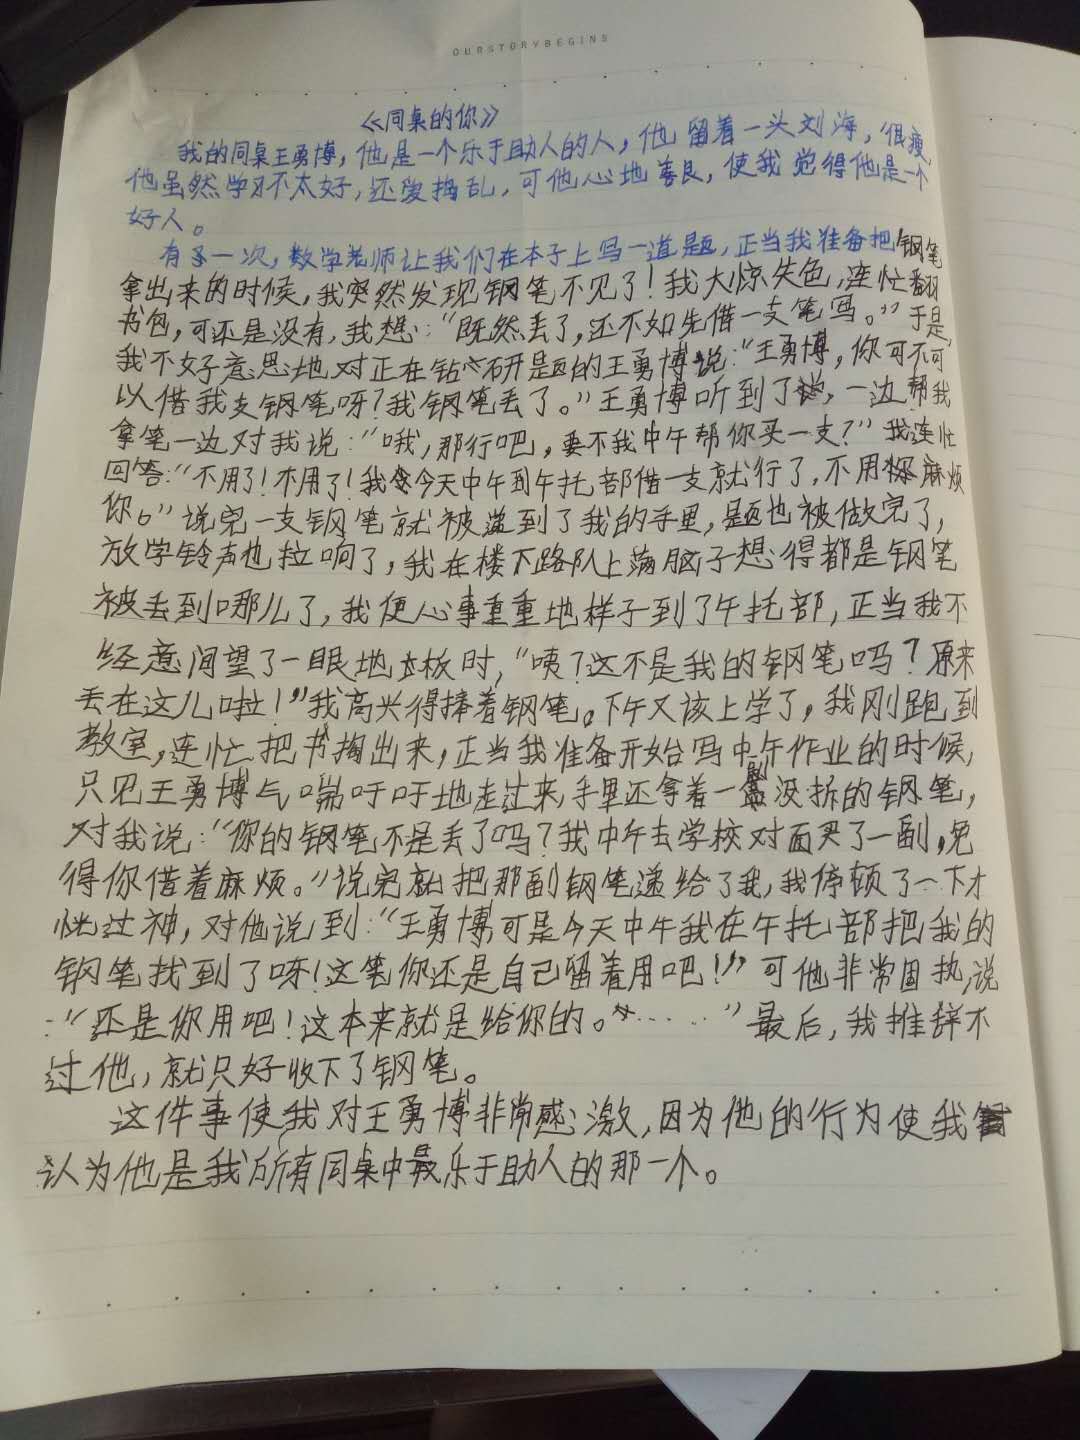 OURSTORYBEGINS
《同桌的你》
我的同桌王勇博，他是一个乐于助人的人，他留着一头刘海，很瘦，
他虽然学习不太好，还爱捣乱，可他心地善良，使我觉得他是一个
好人。
有一次，数学老师让我们在本子上写一道题，正当我准备把钢笔
拿出来的时候，我突然发现钢笔不见了！我大惊失色，连忙翻
书包，可还是没有，我想：“既然丢了，还不如先借一支笔写。”于是，
我不好意思地对正在钻研题的王勇博说：“王勇博，你可不可
以借我支钢笔呀？我钢笔丢了。”王勇博听到了，一边帮我
拿笔一边对我说：“哦，那行吧，要不我中午帮你买一支？”我连忙
回答：“不用了！不用了！我今天中午到午托部借一支就行了，不用麻烦
你。”说完一支钢笔就被递到了我的手里，题也被做完了，
放学铃声也拉响了，我在楼下路队上满脑子想得都是钢笔
被丢到哪儿了，我便心事重重地样子到了午托部，正当我不
经意间望了一眼地板时，“咦？这不是我的钢笔吗？原来
丢在这儿啦！”我高兴得捧着钢笔。下午又该上学了，我刚跑到
教室，连忙把书掏出来，正当我准备开始写中午作业的时候，
只见王勇博气喘吁吁地走过来，手里还拿着一副没拆的钢笔，
对我说：“你的钢笔不是丢了吗？我中午去学校对面买了一副，免
得你借着麻烦。”说完就把那副钢笔递给了我，我停顿了一下才
恍过神，对他说到：“王勇博，可是今天中午我在午托部把我的
钢笔找到了呀！这笔你还是自己留着用吧！”可他非常固执，说
：“还是你用吧！这本来就是给你的。……”最后，我推辞不
过他，就只好收下了钢笔。
这件事使我对王勇博非常感激，因为他的行为使我
认为他是我所有同桌中最乐于助人的那一个。